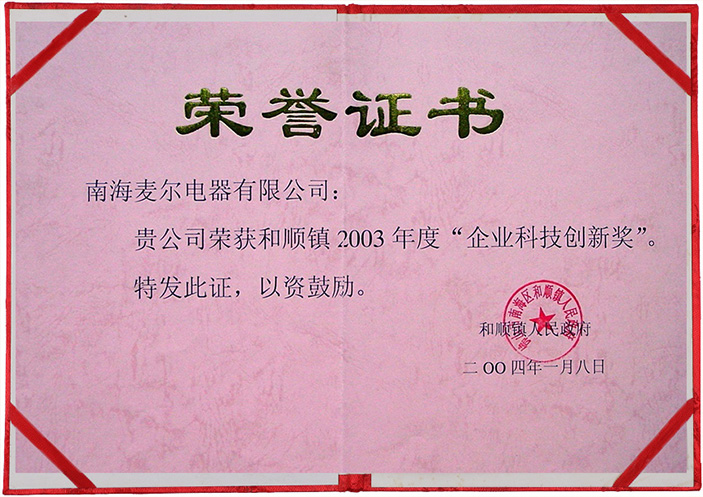 荣誉证书
南海麦尔电器有限公司：
贵公司荣获和顺镇 2003 年度“企业科技创新奖”。
特发此证，以资鼓励。
和顺镇人民政府
二OO四年一月八日
佛山市南海区和顺镇人民政府